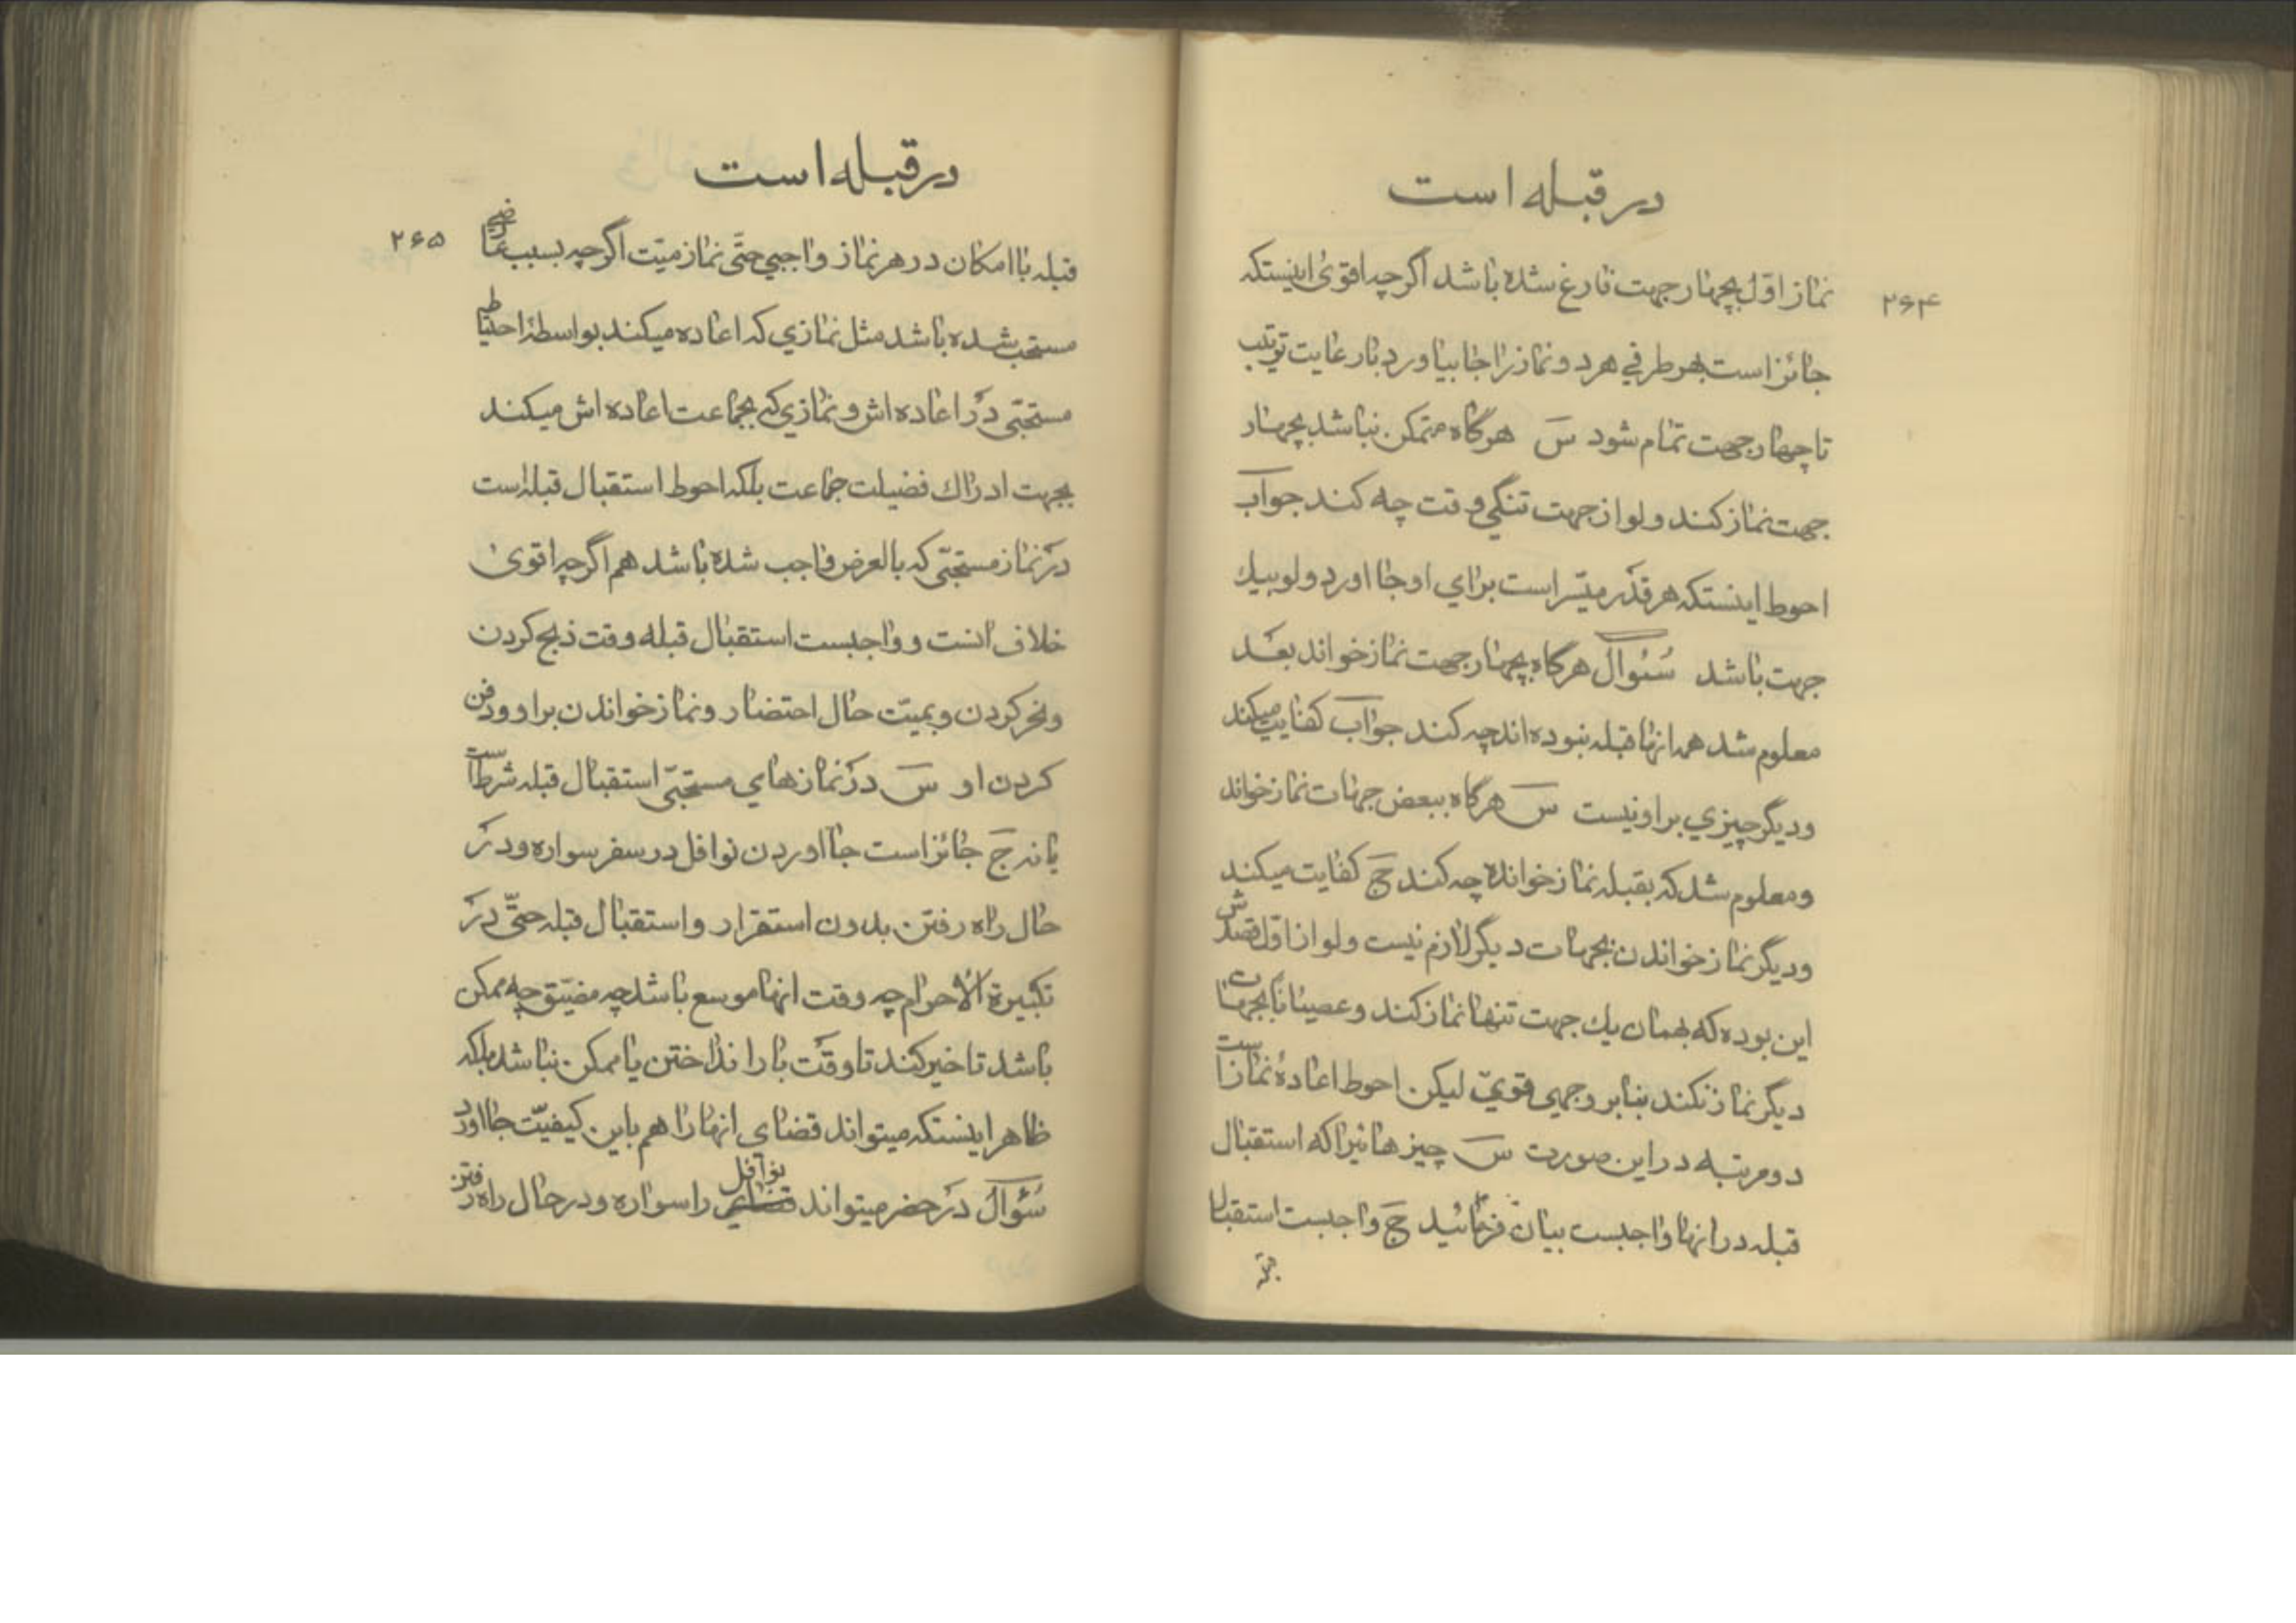 در قبله است
۲۶۴
نماز اول بچهار جهت فارغ شده باشد اگرچه اقوی اینستکه
جائز است بهر طرفي هر دو نماز را جا بیاورد با رعایت ترتیب
تا چهار جهت تمام شود س هرگاه متمکن نباشد بچهار
جهت نماز کند ولو از جهت تنگي وقت چه کند جواب
احوط اینستکه هر قدر میسّر است براي او جا اورد ولو بیك
جهت باشد سُئوال هرگاه بچهار جهت نماز خواند بعد
معلوم شد همه انها قبله نبوده اند چه کند جواب کفایت میکند
ودیگر چیزي بر او نیست س هرگاه ببعض جهات نماز خواند
ومعلوم شد که بقبله نماز خوانده چه کند ج کفایت میکند
ودیگر نماز خواندن بجهات دیگر لازم نیست ولو از اوّل قصدش
این بوده که بهمان یك جهت تنها نماز کند وعصیانا بجهات
دیگر نماز نکند بنابر وجهی قويّ لیکن احوط اعادهٔ نماز است
دو مرتبه در این صورت س چیزهائیرا که استقبال
قبله در انها واجبست بیان فرمائید ج واجبست استقبال
قبله
در قبله است
۲۶۵
قبله با امکان در هر نماز واجبي حتّی نماز میّت اگرچه بسبب عارضي
مستحب شده باشد مثل نمازي که اعاده میکند بواسطهٔ احتیاط
مستحبّی در اعاده اش و نمازي که بجماعت اعاده اش میکند
بجهت ادراك فضیلت جماعت بلکه احوط استقبال قبله است
در نماز مستحبّی که بالعرض واجب شده باشد هم اگرچه اقوی
خلاف انست و واجبست استقبال قبله وقت ذبح کردن
ونحر کردن و بمیّت حال احتضار ونماز خواندن بر او ودفن
کردن او س در نمازهاي مستحبّی استقبال قبله شرط است
یا نه ج جائز است جا اوردن نوافل در سفر سواره ودر
حال راه رفتن بدون استقرار واستقبال قبله حتّی در
تکبیرة الاحرام چه وقت انها موسع باشد چه مضیّق چه ممکن
باشد تاخیر کند تا وقت بار انداختن یا ممکن نباشد بلکه
ظاهر اینستکه میتواند قضای انها را هم باین کیفیّت جا اورد
سُئوال در حضر میتواند نوافل را سواره ودر حال راه رفتن